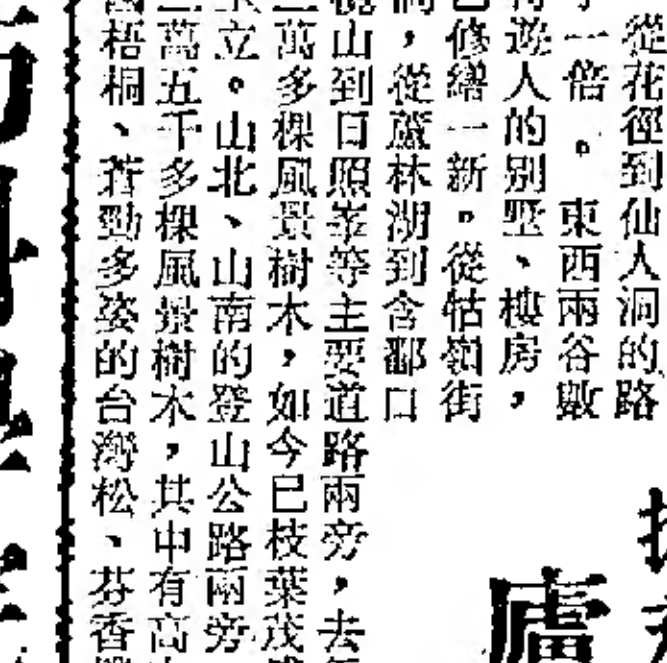 從花徑到仙人洞的路
一倍。東西兩谷數
遊人的別墅、樓房，
修繕一新。從牯嶺街
，從蘆林湖到含鄱口
山到日照峯等主要道路兩旁，去
萬多棵風景樹木，如今已枝葉茂
立。山北、山南的登山公路兩旁
萬五千多棵風景樹木，其中有高
梧桐、蒼勁多姿的台灣松、芬香
廬